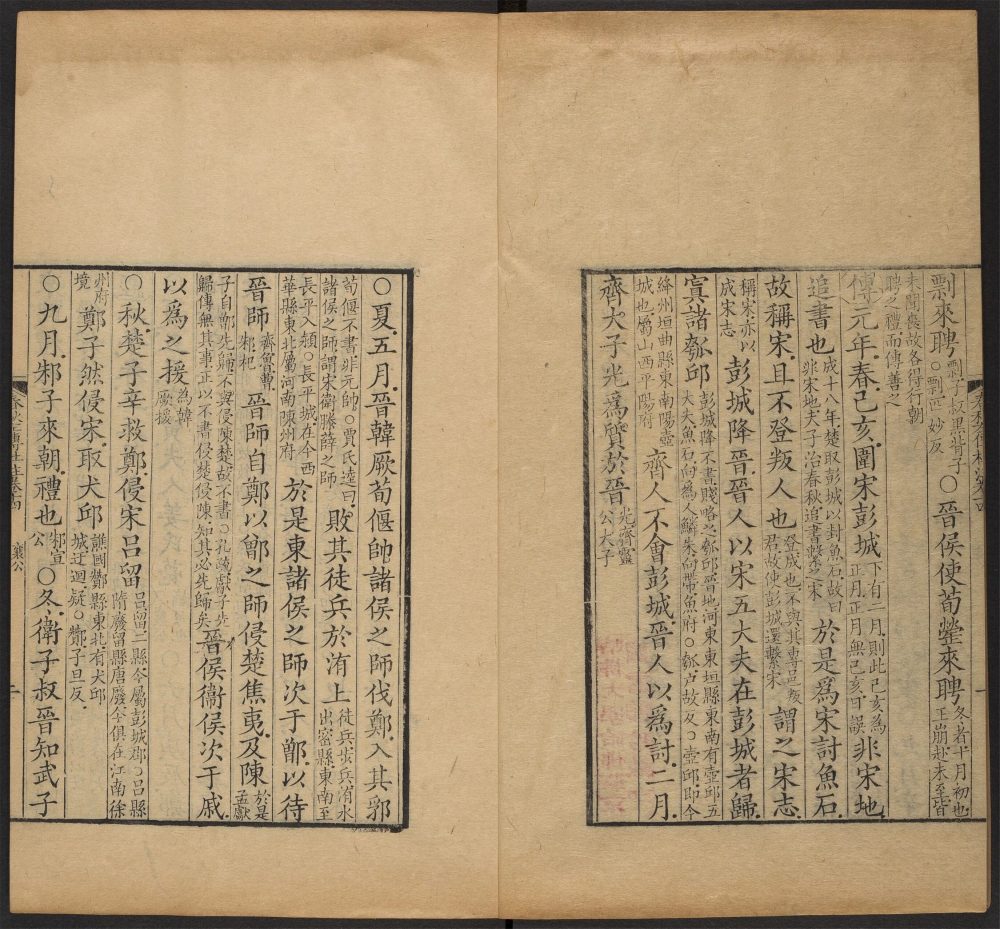 剽來聘剽子叔黑背子○剽匹妙反○晉侯使荀罃來聘冬者十月初也王崩赴未至皆
未聞喪故各得行朝聘之禮而傳善之
傳元年春己亥圍宋彭城下有二月則此己亥為正月正月無己亥日誤非宋地
追書也成十八年楚取彭城以封魚石故曰非宋地夫子治春秋追書繫之宋於是為宋討魚石
故稱宋且不登叛人也登成也不與其專邑叛君故使彭城還繫宋謂之宋志
稱宋亦以成宋志彭城降晉晉人以宋五大夫在彭城者歸
寘諸瓠邱彭城降不書賤略之瓠邱晉地河東東垣縣東南有壺邱五大夫魚石向為人鱗朱向帶魚府○瓠户故反○壺邱即今
絳州垣曲縣東南陽壺城也屬山西平陽府齊人不會彭城晉人以為討二月
齊大子光為質於晉光齊靈公大子
○夏五月晉韓厥荀偃帥諸侯之師伐鄭入其郛
荀偃不書非元帥○賈氏逵曰諸侯之師謂宋衞滕薛之師敗其徒兵於洧上徒兵步兵洧水出密縣東南至
長平入潁○長平城在今西華縣東北屬河南陳州府於是東諸侯之師次于鄫以待
晉師齊魯曹邾杞晉師自鄭以鄫之師侵楚焦夷及陳於是孟獻
子自鄫先歸不與侵陳楚故不書○孔疏獻子先歸傳無其事正以不書侵楚侵陳知其必先歸矣晉侯衞侯次于戚
以為之援為韓厥援
○秋楚子辛救鄭侵宋呂留呂留二縣今屬彭城郡○呂縣隋廢留縣唐廢今俱在江南徐
州府境鄭子然侵宋取犬邱譙國酇縣東北有犬邱城迂迴疑○酇子旦反
○九月邾子來朝禮也邾宣公○冬衞子叔晉知武子
襄公